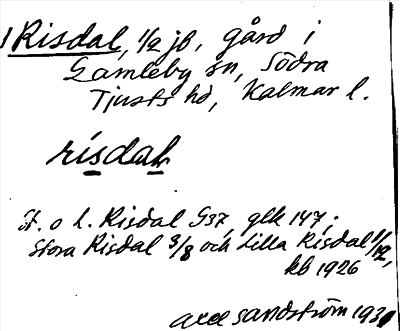 Risdal, 1/2 jb, gård i
Gamleby sn, Södra
Tjusts hd, Kalmar l.
risdal
St. o l. Risdal G37, glk 147;
Stora Risdal 3/8 och Lilla Risdal 1/12,
kb 1926
Axel Sandström 1931